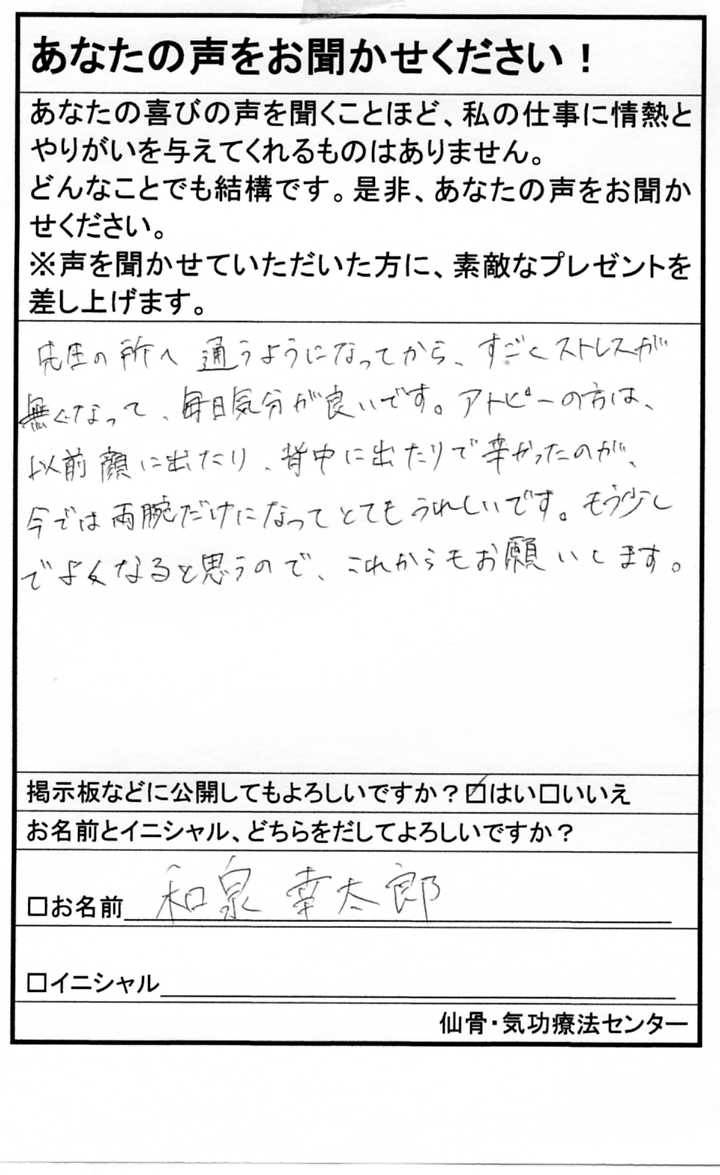 あなたの声をお聞かせください！
あなたの喜びの声を聞くことほど、私の仕事に情熱と
やりがいを与えてくれるものはありません。
どんなことでも結構です。是非、あなたの声をお聞か
せください。
※声を聞かせていただいた方に、素敵なプレゼントを
差し上げます。
先生の所へ通うようになってから、すごくストレスが
無くなって、毎日気分が良いです。アトピーの方は、
以前顔に出たり、背中に出たりで辛かったのが、
今では両腕だけになってとてもうれしいです。もう少し
でよくなると思うので、これからもお願いします。
掲示板などに公開してもよろしいですか？☑はい□いいえ
お名前とイニシャル、どちらをだしてよろしいですか？
□お名前 和泉 幸太郎
□イニシャル
仙骨・気功療法センター